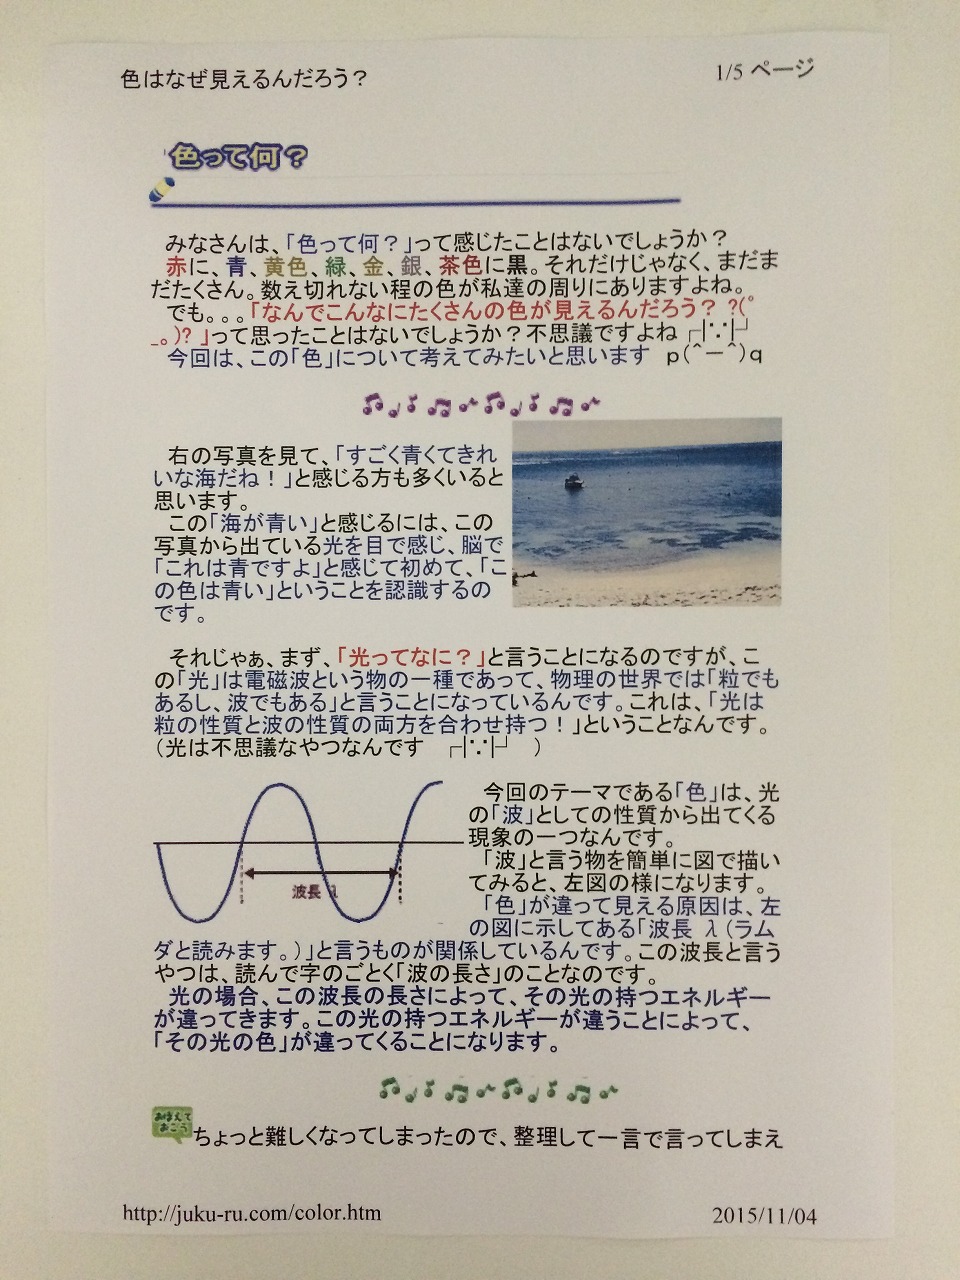 色はなぜ見えるんだろう？
1/5 ページ
色って何？
みなさんは、「色って何？」って感じたことはないでしょうか？
赤に、青、黄色、緑、金、銀、茶色に黒。それだけじゃなく、まだま
だたくさん。数え切れない程の色が私達の周りにありますよね。
でも。。。「なんでこんなにたくさんの色が見えるんだろう？ ?(゜
_。)? 」って思ったことはないでしょうか？不思議ですよね ┌|∵|┘
今回は、この「色」について考えてみたいと思います　p(＾－＾)q
右の写真を見て、「すごく青くてきれ
いな海だね！」と感じる方も多くいると
思います。
この「海が青い」と感じるには、この
写真から出ている光を目で感じ、脳で
「これは青ですよ」と感じて初めて、「こ
の色は青い」ということを認識するの
です。
それじゃぁ、まず、「光ってなに？」と言うことになるのですが、こ
の「光」は電磁波という物の一種であって、物理の世界では「粒でも
あるし、波でもある」と言うことになっているんです。これは、「光は
粒の性質と波の性質の両方を合わせ持つ！」ということなんです。
（光は不思議なやつなんです　┌|∵|┘　）
今回のテーマである「色」は、光
の「波」としての性質から出てくる
現象の一つなんです。
「波」と言う物を簡単に図で描い
てみると、左図の様になります。
「色」が違って見える原因は、左
の図に示してある「波長 λ（ラム
ダと読みます。）」と言うものが関係しているんです。この波長と言う
やつは、読んで字のごとく「波の長さ」のことなのです。
光の場合、この波長の長さによって、その光の持つエネルギー
が違ってきます。この光の持つエネルギーが違うことによって、
「その光の色」が違ってくることになります。
波長 λ
おぼえて
おこう
ちょっと難しくなってしまったので、整理して一言で言ってしまえ
http://juku-ru.com/color.htm
2015/11/04